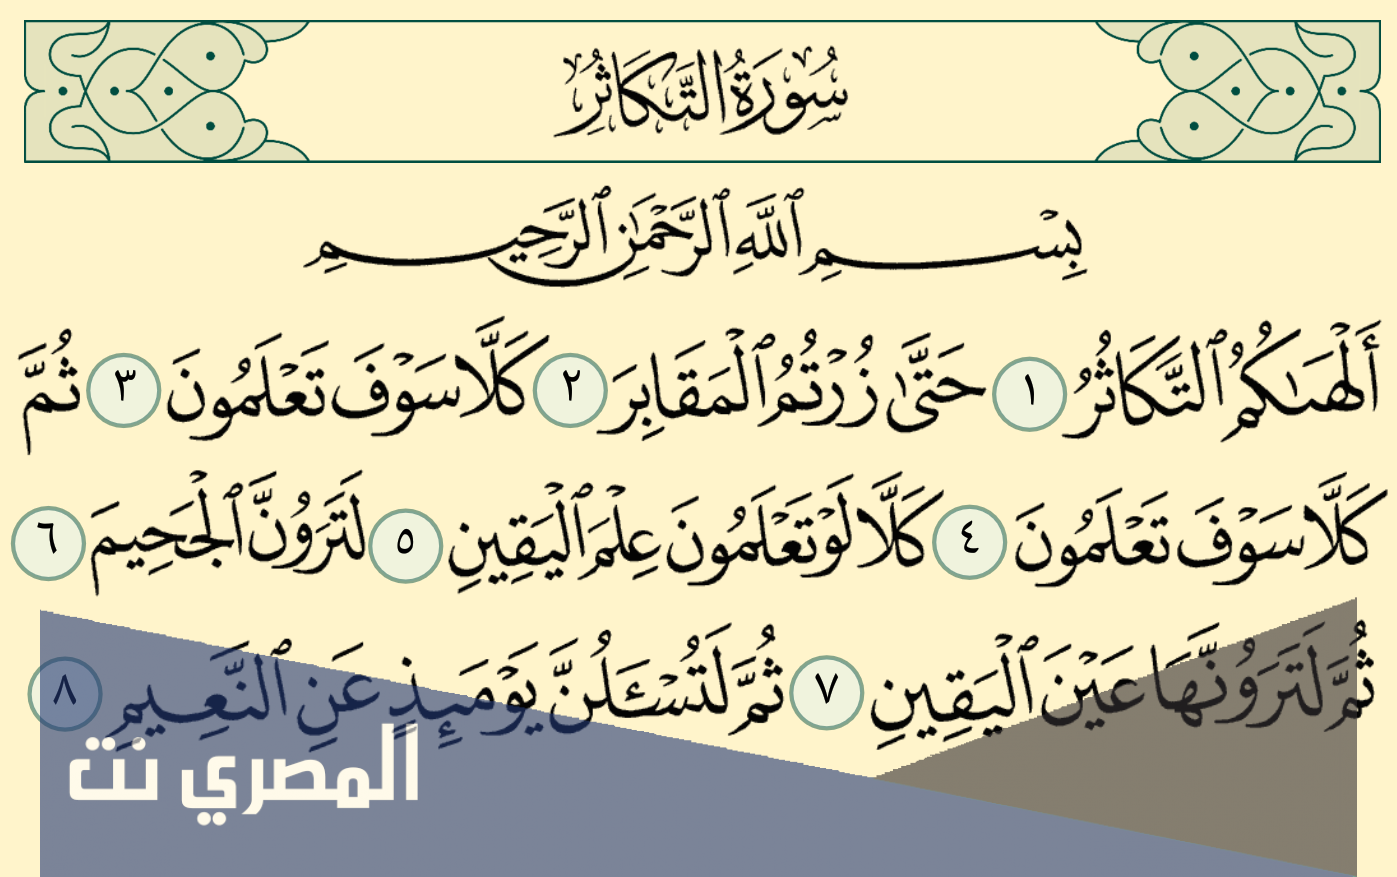 سُورَةُ التَّكَاثُرِ
بِسْمِ ٱللَّهِ ٱلرَّحْمَٰنِ ٱلرَّحِيمِ
أَلْهَىٰكُمُ ٱلتَّكَاثُرُ ١ حَتَّىٰ زُرْتُمُ ٱلْمَقَابِرَ ٢ كَلَّا سَوْفَ تَعْلَمُونَ ٣ ثُمَّ
كَلَّا سَوْفَ تَعْلَمُونَ ٤ كَلَّا لَوْ تَعْلَمُونَ عِلْمَ ٱلْيَقِينِ ٥ لَتَرَوُنَّ ٱلْجَحِيمَ ٦
ثُمَّ لَتَرَوُنَّهَا عَيْنَ ٱلْيَقِينِ ٧ ثُمَّ لَتُسْـَٔلُنَّ يَوْمَئِذٍ عَنِ ٱلنَّعِيمِ ٨
المصري نت